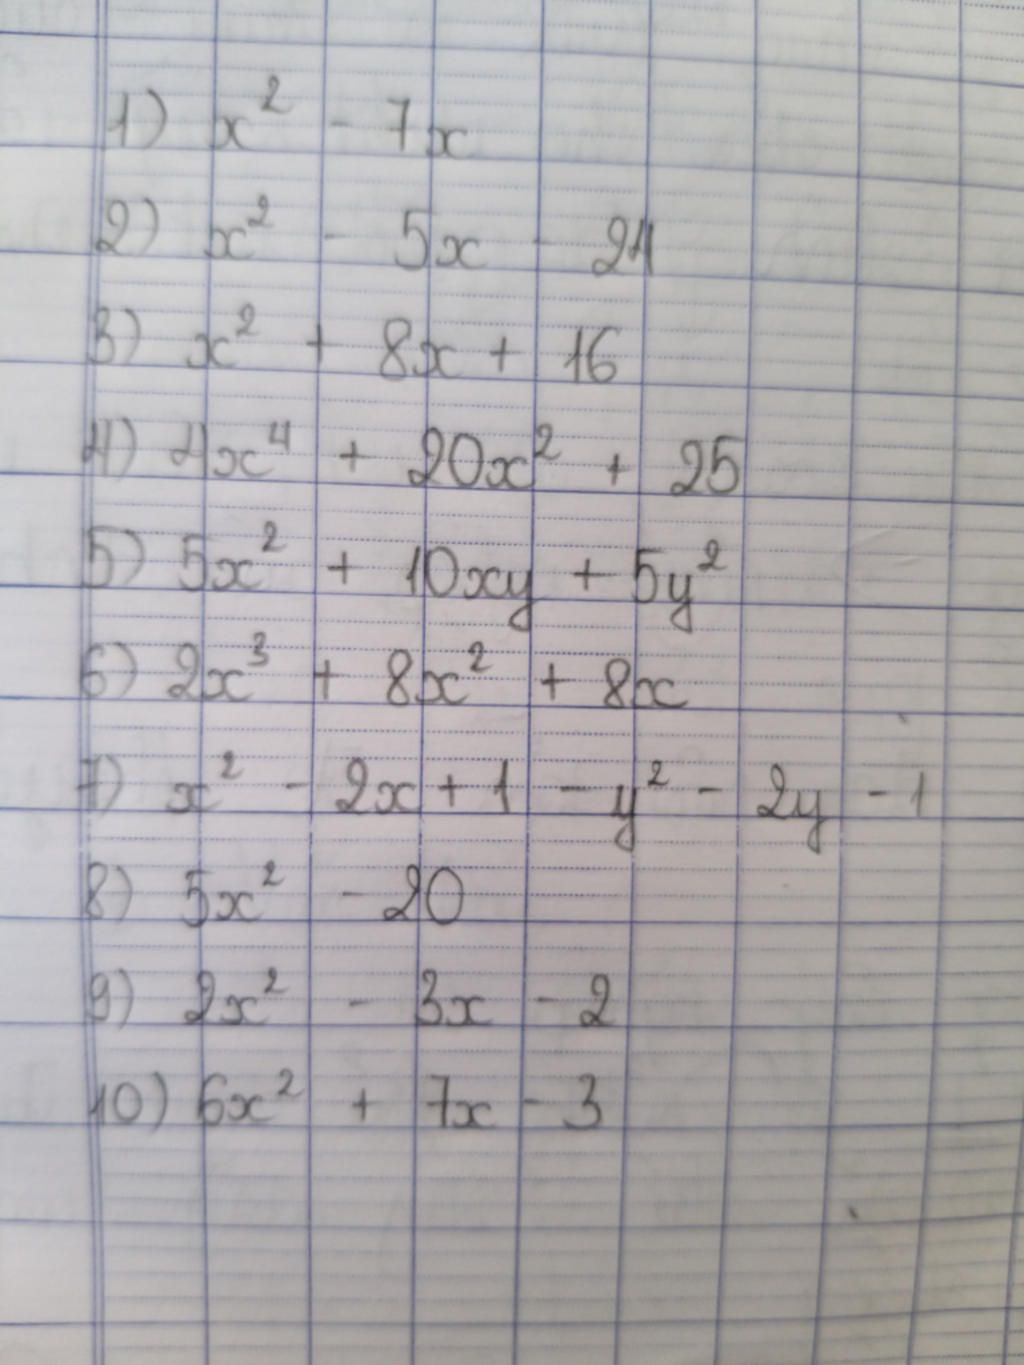 1) x² - 7x
2) x² - 5x - 24
3) x² + 8x + 16
4) 4x⁴ + 20x² + 25
5) 5x² + 10xy + 5y²
6) 2x³ + 8x² + 8x
7) x² - 2x + 1 - y² - 2y - 1
8) 5x² - 20
9) 2x² - 3x - 2
10) 6x² + 7x - 3